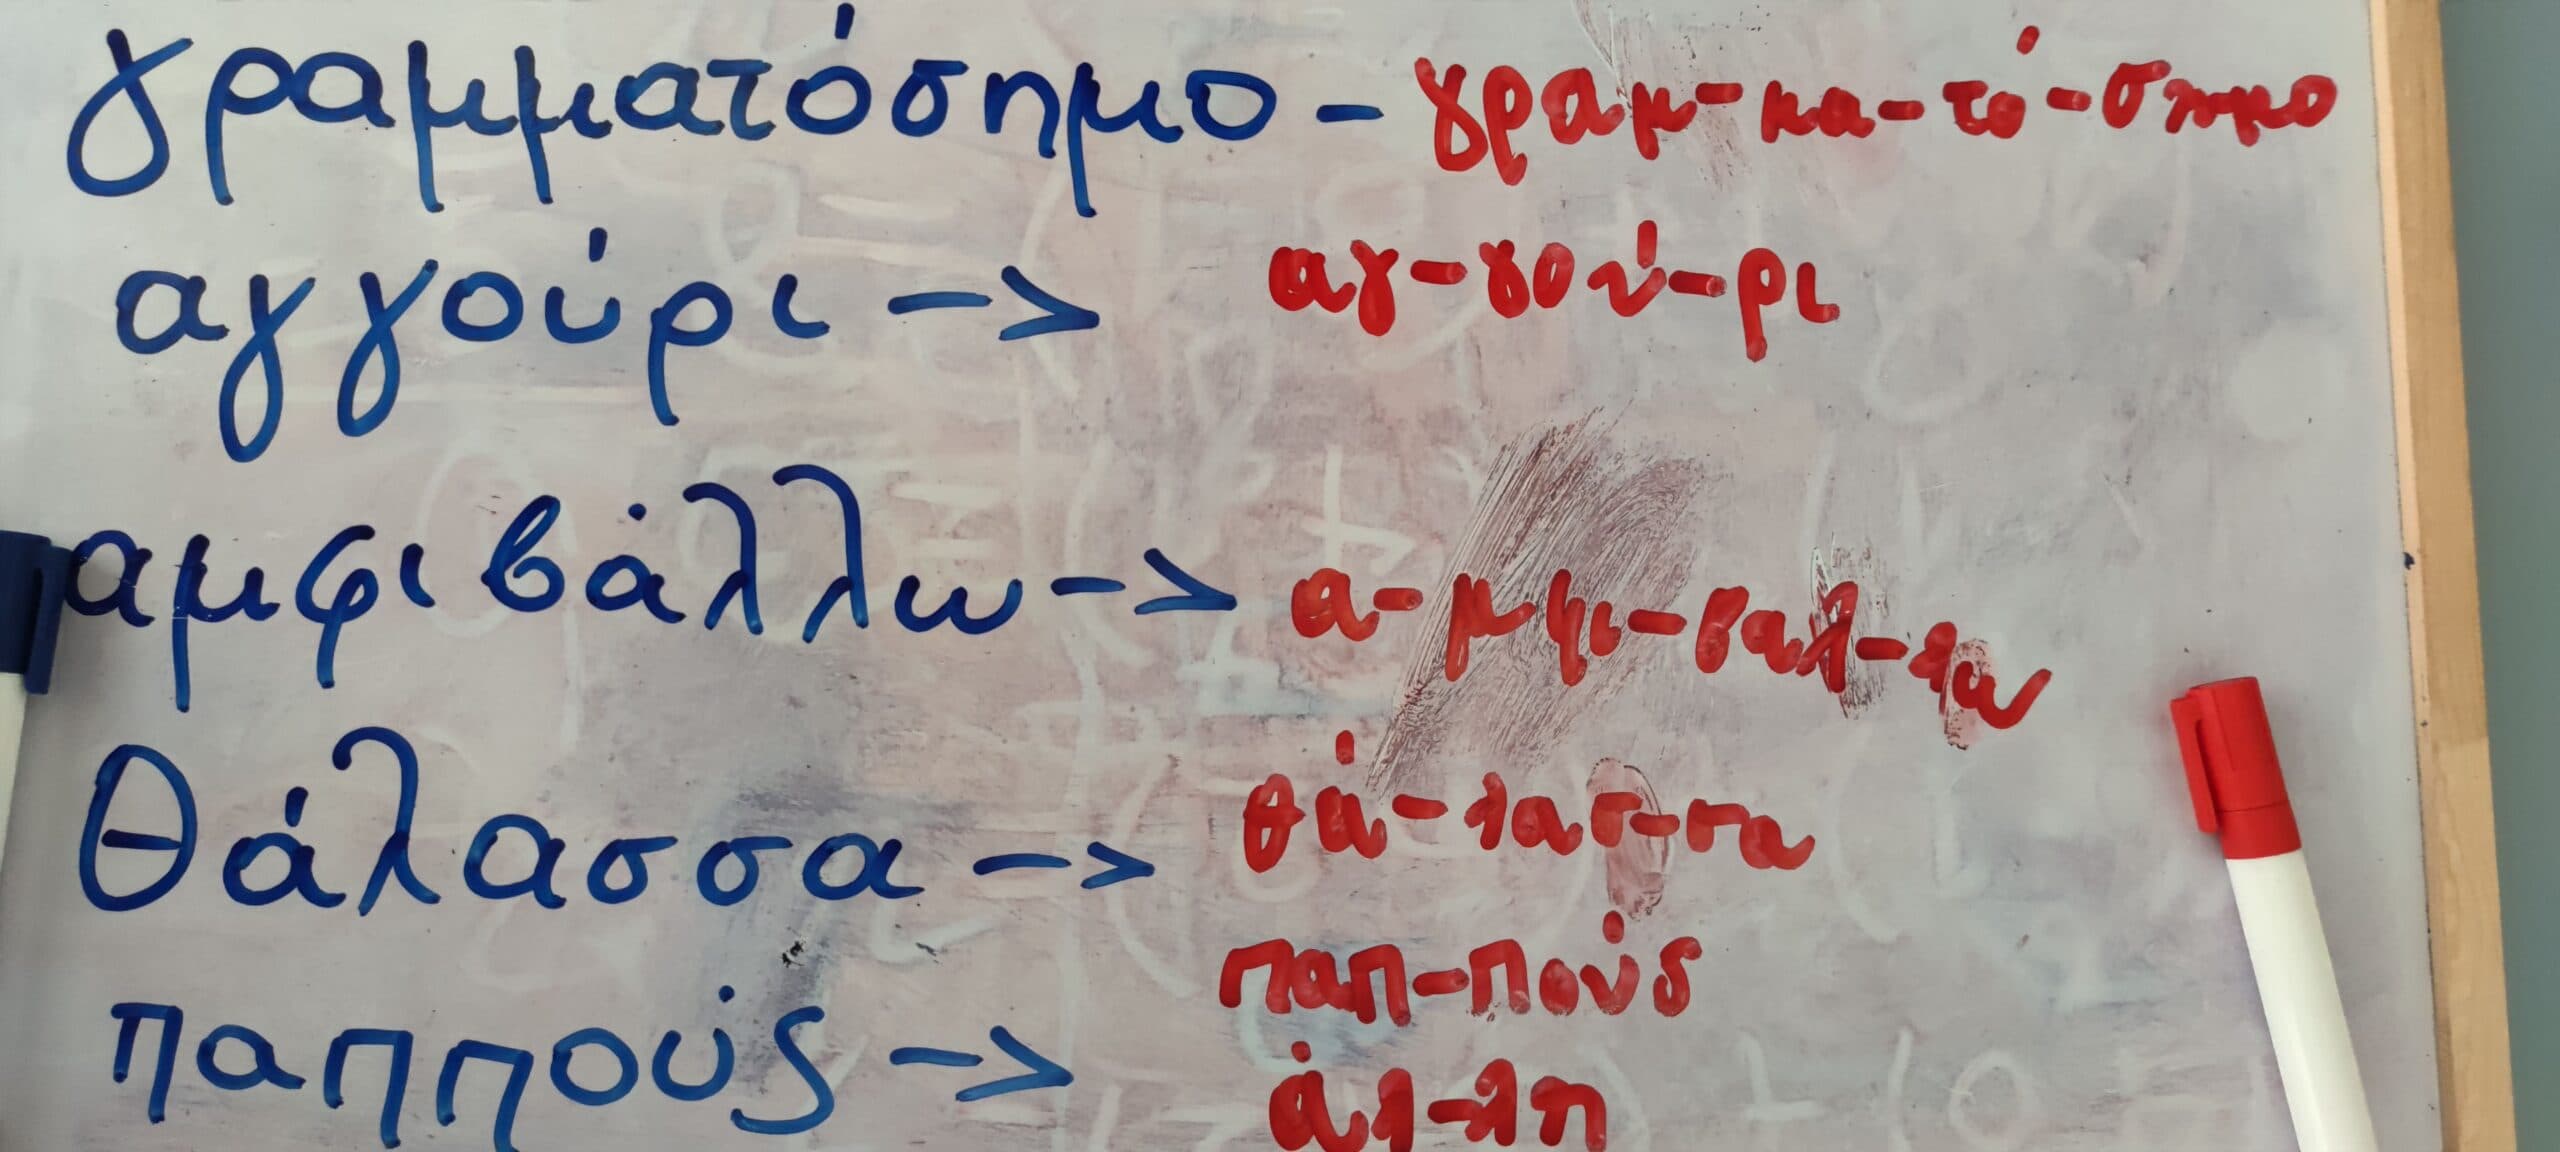 γραμματόσημο - γραμ-μα-τό-σημο
αγγούρι -> αγ-γού-ρι
αμφιβάλλω -> α-μφι-βαλ-λω
θάλασσα -> θά-λασ-σα
παππούς -> παπ-πούς
άλ-λη